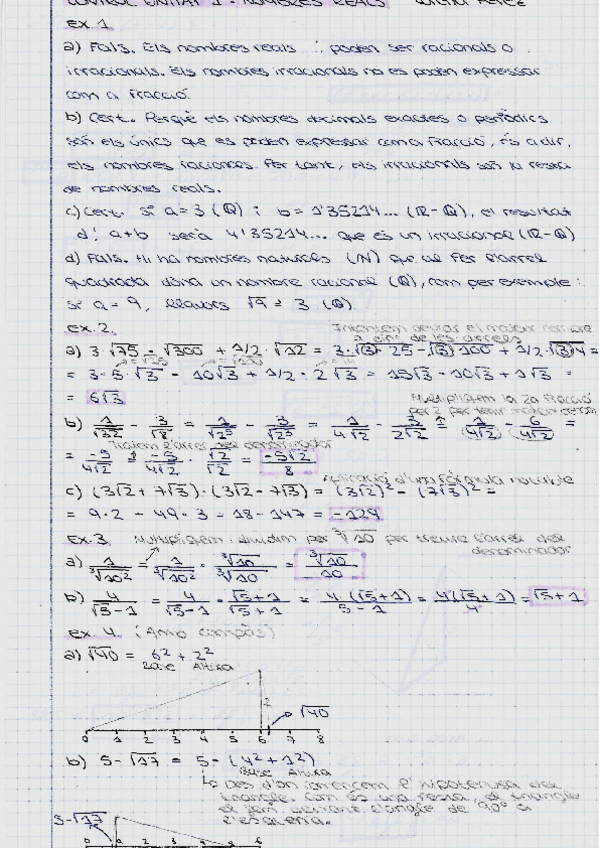 CONTROL UNITAT 1 - NOMBRES REALS
Ex. 1
a) Fals. Els nombres reals poden ser racionals o
irracionals. Els nombres irracionals no es poden expressar
com a fracció.
b) Cert. Perquè els nombres decimals exactes o periòdics
són els únics que es poden expressar com a fracció, és a dir,
els nombres racionals. Per tant, els irracionals són la resta
de nombres reals.
c) Cert. Si a = 3 (Q) i b = 1'35214... (R-Q), el resultat
d' a+b serà 4'35214... que és un irracional (R-Q)
d) Fals. Hi ha nombres naturals (N) que al fer l'arrel
quadrada dóna un nombre racional (Q), com per exemple:
Si a = 9, llavors √9 = 3 (Q)
Ex. 2.
a) 3·√75 - √300 + 1/2·√12 = 3·√(3)·25 - √(3)·100 + 1/2·√(3)4 =
= 3·5·√3 - 10√3 + 1/2·2√3 = 15√3 - 10√3 + 1√3 =
= 6√3
Multipliquem la 2a fracció
b) 1/√32 - 3/√8 = 1/√2⁵ - 3/√2³ = 1/4√2 - 3/2√2 = 1/(4√2) - 6/(4√2) =
= -5/4√2 = -5/4√2 · √2/√2 = -5√2/8
Aplicació d'una fórmula notable
c) (3√2 + 7√3)·(3√2 - 7√3) = (3√2)² - (7√3)² =
= 9·2 - 49·3 = 18 - 147 = -129
Ex. 3. Multipliquem i dividim per ³√10 per treure l'arrel del
denominador
a) 1/³√10² = 1/³√10² · ³√10/³√10 = ³√10/10
b) 4/√5-1 = 4/√5-1 · √5+1/√5+1 = 4·(√5+1)/5-1 = 4(√5+1)/4 = √5+1
Ex. 4. (Amb compàs)
a) √40 = 6² + 2²
Base Altura
2
√40
0 1 2 3 4 5 6 7 8
b) 5 - √17 = 5 - (4² + 1²)
Base Altura
Des d'on comencem l'hipotenusa del
triangle. Com és una resta, el triangle
l'angle de 90° a
l'esquerra.
5-√17